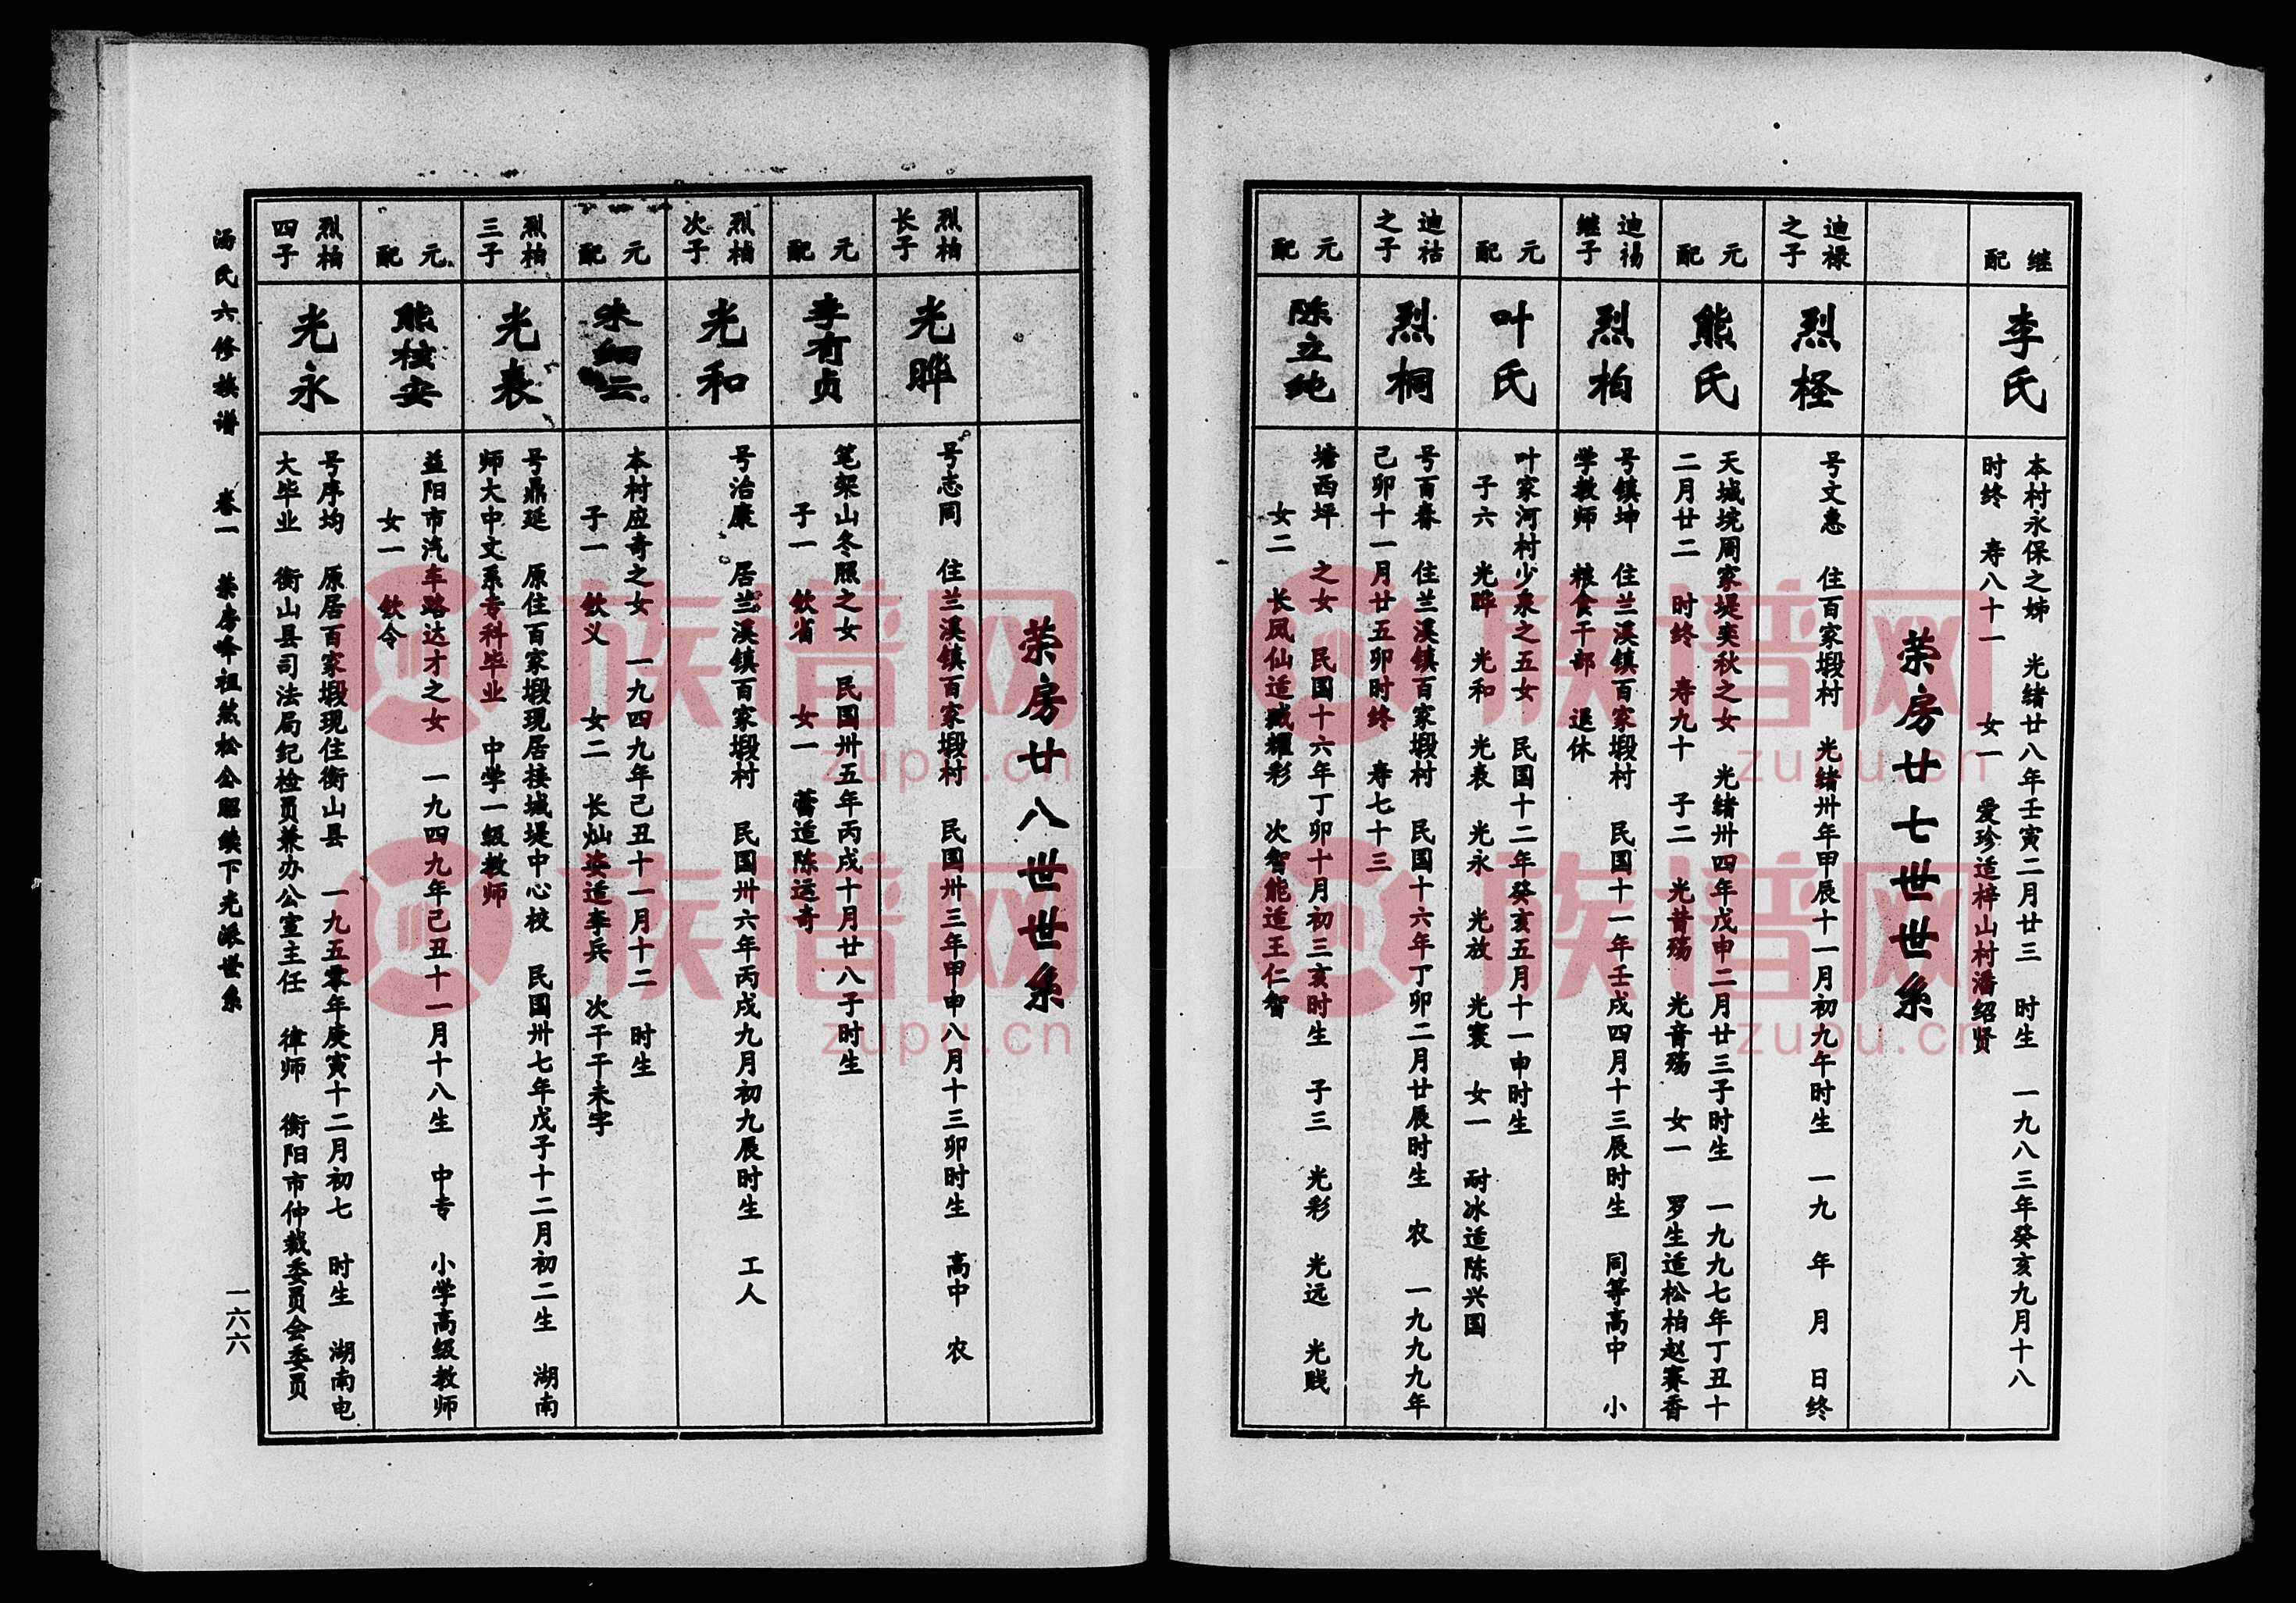 继配
李氏
本村永保之姊　光绪廿八年壬寅二月廿三　时生　一九八三年癸亥九月十八
时终　寿八十一　女一　爱珍适梓山村潘绍贤
荣房廿七世世系
迪禄之子
烈柽
号文惠　住百家塅村　光绪卅年甲辰十一月初九午时生　一九　年　月　日终
元配
熊氏
天城垸周家堤奕秋之女　光绪卅四年戊申二月廿三子时生　一九九七年丁丑十
二月廿二　时终　寿九十　子二　光昔殇　光音殇　女一　罗生适松柏赵赛香
迪禓继子
烈柏
号镇坤　住兰溪镇百家塅村　民国十一年壬戌四月十三辰时生　同等高中　小
学教师　粮食干部　退休
元配
叶氏
叶家河村少泉之五女　民国十二年癸亥五月十一申时生
子六　光晔　光和　光表　光永　光放　光寰　女一　耐冰适陈兴国
迪祜之子
烈桐
号百春　住兰溪镇百家塅村　民国十六年丁卯二月廿辰时生　农　一九九九年
己卯十一月廿五卯时终　寿七十三
元配
陈立纯
塘西坪　之女　民国十六年丁卯十月初三亥时生　子三　光彩　光远　光贱
女二　长凤仙适臧耀彩　次智能适王仁智
荣房廿八世世系
烈柏长子
光晔
号志同　住兰溪镇百家塅村　民国卅三年甲申八月十三卯时生　高中　农
元配
李有贞
笔架山冬照之女　民国卅五年丙戌十月廿八子时生
子一　钦省　女一　蕾适陈运奇
烈柏次子
光和
号治康　居兰溪镇百家塅村　民国卅六年丙戌九月初九辰时生　工人
元配
朱细云
本村应奇之女　一九四九年己丑十一月十二　时生
子一　钦义　女二　长灿姿适李兵　次干干未字
烈柏三子
光表
号鼎延　原住百家塅现居接城堤中心校　民国卅七年戊子十二月初二生　湖南
师大中文系专科毕业　中学一级教师
元配
熊核安
益阳市汽车路达才之女　一九四九年己丑十一月十八生　中专　小学高级教师
女一　钦令
烈柏四子
光永
号序均　原居百家塅现住衡山县　一九五零年庚寅十二月初七　时生　湖南电
大毕业　衡山县司法局纪检员兼办公室主任　律师　衡阳市仲裁委员会委员
汤氏六修族谱　卷一　荣房峰祖然松公昭续下光派世系　一六六
族谱网
zupu.cn
族谱网
zupu.cn
族谱网
zupu.cn
族谱网
zupu.cn